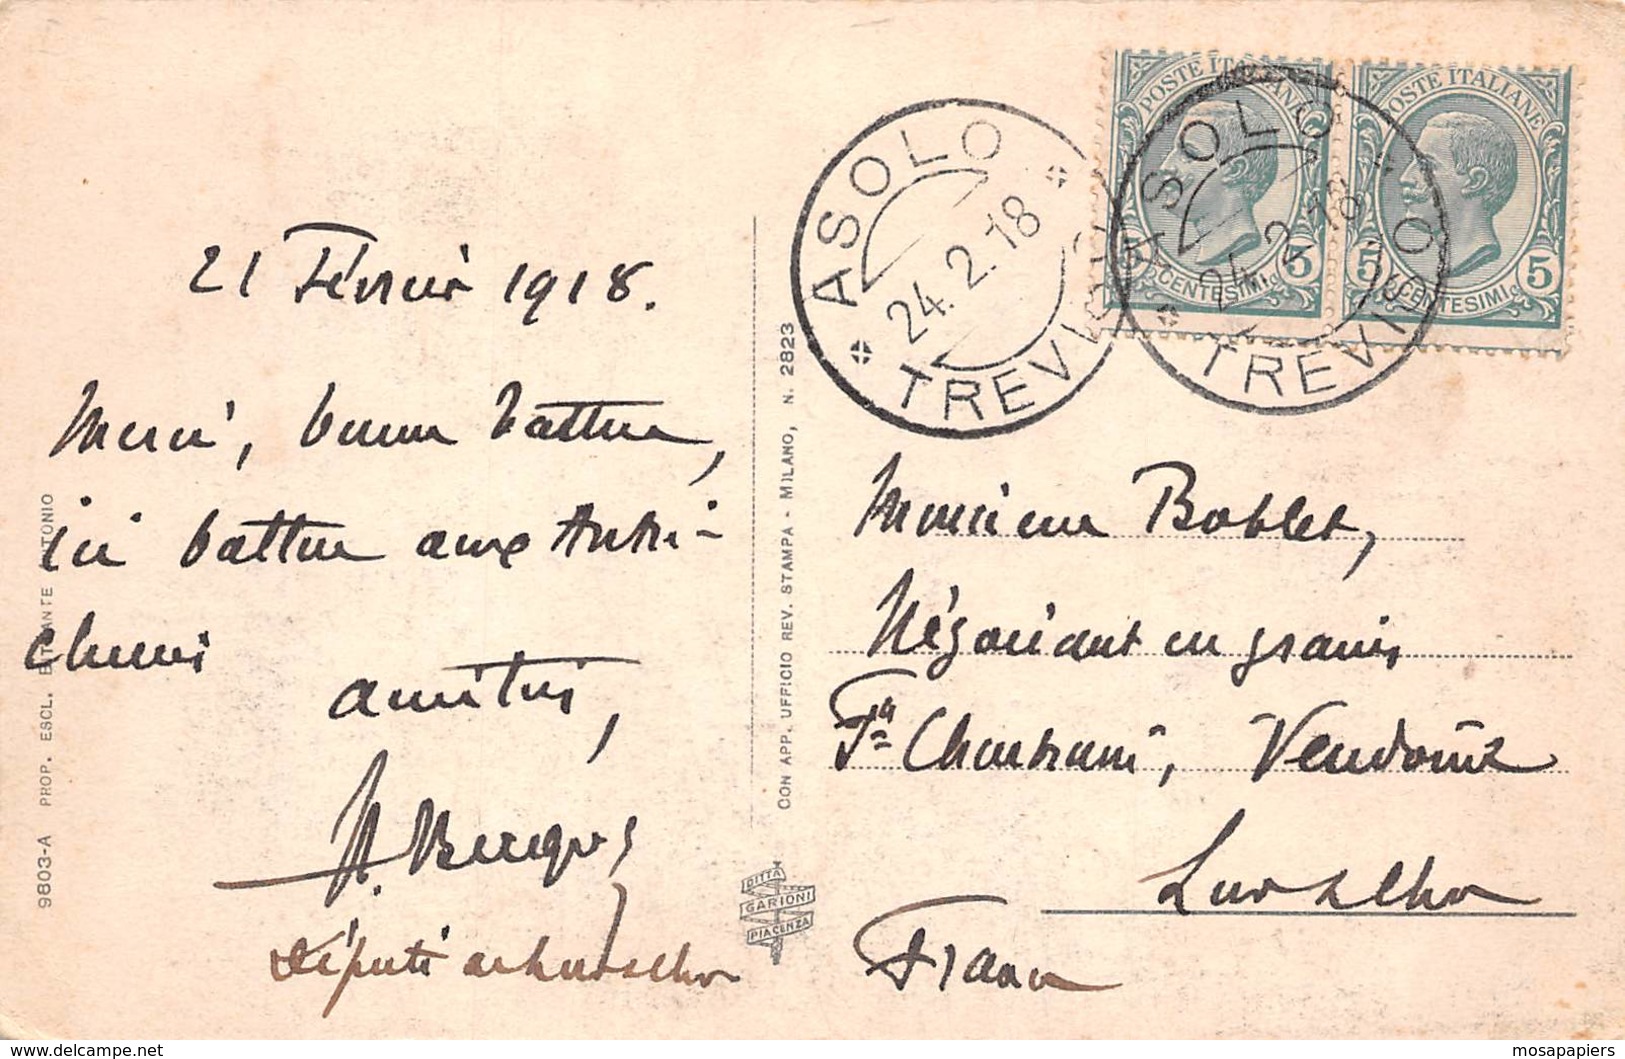 21 Février 1918.
Merci, bonne battue,
ici battue aux Autri-
chiens
amitiés,
Député
Monsieur Boblet,
Négociant en grains
Fg Chartrain, Vendôme
Loir & Cher
France
ASOLO
24.2.18
TREVISO
ASOLO
24.2.18
TREVISO
POSTE ITALIANE
5 CENTESIMI 5
POSTE ITALIANE
5 CENTESIMI 5
9803-A PROP. ESCL.
CON APP. UFFICIO REV. STAMPA - MILANO, N. 2823
DITTA
GARIONI
PIACENZA
mosapapiers